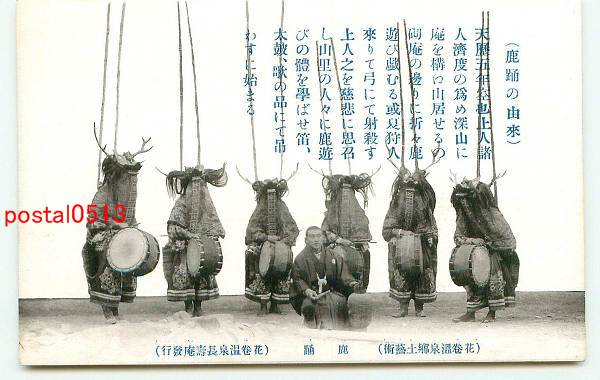 （鹿踊の由來）
天曆五年空也上人諸
人濟度の爲め深山に
庵を構ゐ山居せるの
砌庵の邊りに折々鹿
遊び戯むる或夏狩人
來りて弓にて射殺す
上人之を慈悲に思召
し山里の人々に鹿遊
びの體を學ばせ笛、
太鼓、歌の品にて弔
わすに始まる
postal0513
（花卷溫泉鄉土藝術）
鹿踊
（花卷溫泉長壽庵發行）